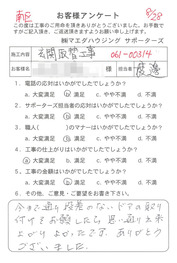 南区
お客様アンケート
8/29
この度は工事のご用命を頂きありがとうございました。お手数で
すがご記入頂き、ご返送頂きますようお願い申し上げます。
㈱マエダハウジング サポーターズ
施工内容 玄関取替工事 061-00314
お客様名 様 担当者 渡邊
1．電話の応対はいかがでしたでしょうか？
a．大変満足 b．満足 c．やや不満 d．不満
2．サポーターズ担当者の応対はいかがでしたでしょうか？
a．大変満足 b．満足 c．やや不満 d．不満
3．職人( )のマナーはいかがでしたでしょうか？
a．大変満足 b．満足 c．やや不満 d．不満
4．工事の仕上がりはいかがでしたでしょうか？
a．大変満足 b．満足 c．やや不満 d．不満
5．工事の金額はいかがでしたでしょうか？
a．大変満足 b．満足 c．やや不満 d．不満
6．その他、ご意見・ご要望をお書き下さい。
ドアの取り
付けをお願したら思い通り出来
上がりよかったです。ありがとう
ございました。